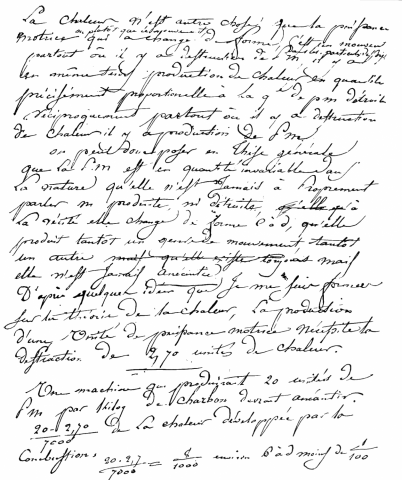 La chaleur n'est autre chose que la puissance
motrice ou plutôt que le mouvement qui a changé de forme, c'est un mouvement
dans les particules des corps
partout où il y a destruction de p. m. il y a
en même temps production de chaleur en quantité
précisément proportionnelle à la q.té de p m détruite
réciproquement partout où il y a destruction
de chaleur il y a production de P m
on peut donc poser en thèse générale
que La P. m est en quantité invariable dans
La nature qu'elle n'est jamais à proprement
parler ni produite ni détruite, qu'elle à
La vérité elle change de forme c à d, qu'elle
produit tantôt un genre de mouvement tantôt
un autre mais qu'elle existe toujours mais
elle n'est jamais anéantie
D'après quelques idées que je me suis formées
sur la théorie de la chaleur, La production
d'une Unité de puissance motrice nécessite la
destruction de 2,70 unités de chaleur.
Une machine qui produirait 20 unités de
P m par Kilog de Charbon devrait anéantir
20 · 2,70 / 7000 de La chaleur développée par la
Combustion, 20 · 2,7 / 7000 = 8 / 1000 environ c à d moins de 1 / 100